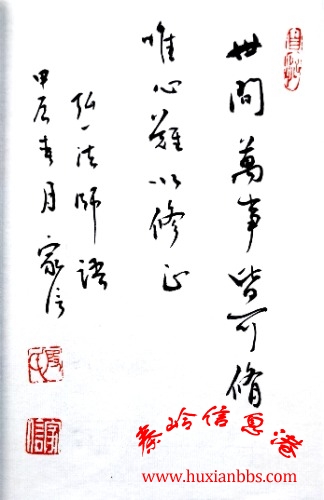 世間萬事皆可脩
唯心難以修正
弘一法師語
甲辰春月家信
秦岭信息港
www.huxianbbs.com